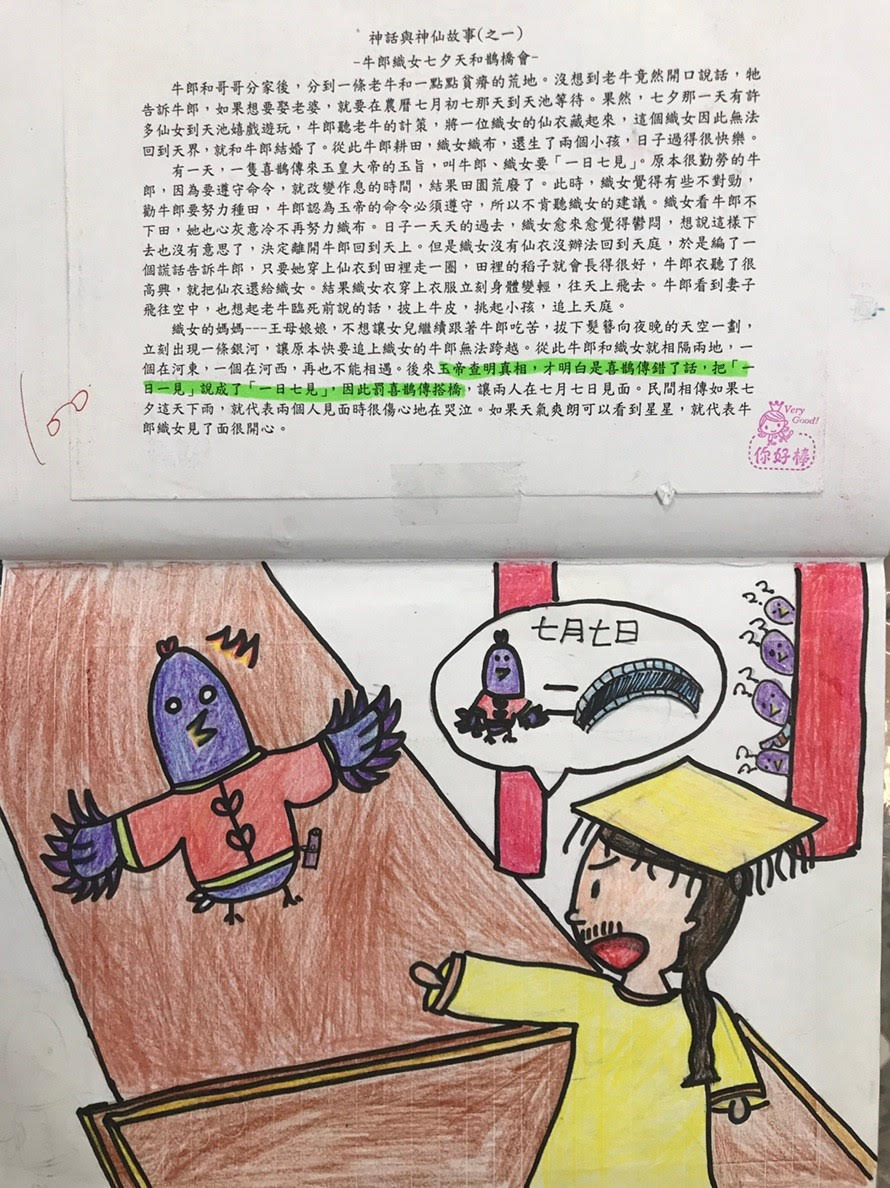 神話與神仙故事(之一)
-牛郎織女七夕天和鵲橋會-
牛郎和哥哥分家後，分到一條老牛和一點點貧瘠的荒地。沒想到老牛竟然開口說話，牠
告訴牛郎，如果想要娶老婆，就要在農曆七月初七那天到天池等待。果然，七夕那一天有許
多仙女到天池嬉戲遊玩，牛郎聽老牛的計策，將一位織女的仙衣藏起來，這個織女因此無法
回到天界，就和牛郎結婚了。從此牛郎耕田，織女織布，還生了兩個小孩，日子過得很快樂。
有一天，一隻喜鵲傳來玉皇大帝的玉旨，叫牛郎、織女要「一日七見」。原本很勤勞的牛
郎，因為要遵守命令，就改變作息的時間，結果田園荒廢了。此時，織女覺得有些不對勁，
勸牛郎要努力種田，牛郎認為玉帝的命令必須遵守，所以不肯聽織女的建議。織女看牛郎不
下田，她也心灰意冷不再努力織布。日子一天天的過去，織女愈來愈覺得鬱悶，想說這樣下
去也沒有意思了，決定離開牛郎回到天上。但是織女沒有仙衣沒辦法回到天庭，於是編了一
個謊話告訴牛郎，只要她穿上仙衣到田裡走一圈，田裡的稻子就會長得很好，牛郎衣聽了很
高興，就把仙衣還給織女。結果織女衣穿上衣服立刻身體變輕，往天上飛去。牛郎看到妻子
飛往空中，也想起老牛臨死前說的話，披上牛皮，挑起小孩，追上天庭。
織女的媽媽---王母娘娘，不想讓女兒繼續跟著牛郎吃苦，拔下髮簪向夜晚的天空一劃，
立刻出現一條銀河，讓原本快要追上織女的牛郎無法跨越。從此牛郎和織女就相隔兩地，一
個在河東，一個在河西，再也不能相遇。後來玉帝查明真相，才明白是喜鵲傳錯了話，把「一
日一見」說成了「一日七見」，因此罰喜鵲傳搭橋，讓兩人在七月七日見面。民間相傳如果七
夕這天下雨，就代表兩個人見面時很傷心地在哭泣。如果天氣爽朗可以看到星星，就代表牛
郎織女見了面很開心。
100
Very
Good!
你好棒
七月七日
=
??
??
??
??